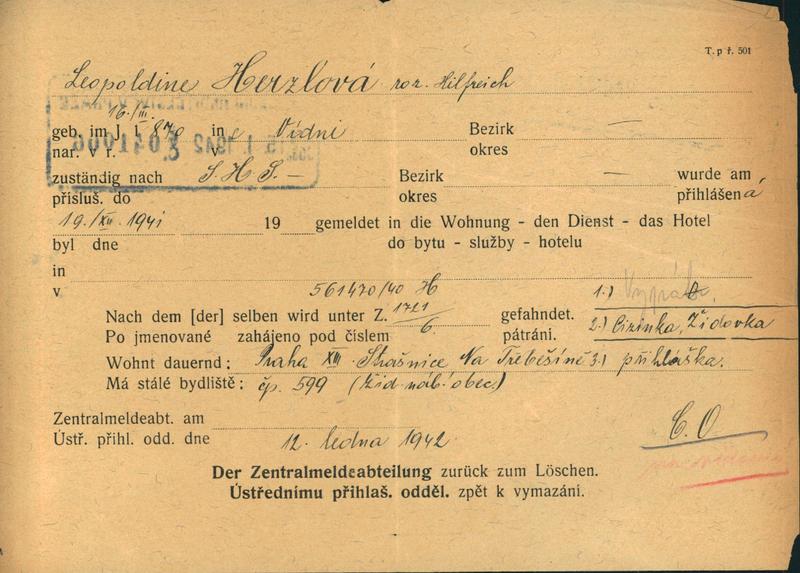 T. p ř. 501
Leopoldine Herzlová roz. Hilfreich
16./III.
geb. im J. 1 870 in e Vídni Bezirk —
nar. v r. v okres
zuständig nach S. H. S. — Bezirk — wurde am
přísluš. do okres přihlášen á
19./XII. 1941 19 gemeldet in die Wohnung - den Dienst - das Hotel
byl dne do bytu - služby - hotelu
in
v 561470/40 H 1.)
Nach dem [der] selben wird unter Z. 1721 gefahndet.
Po jmenované zahájeno pod číslem 6. pátrání. 2.) Cizinka, Židovka
Wohnt dauernd : Praha XIII. Strašnice Na Třebešíně 3.) přihláška.
Má stálé bydliště : čp. 599 (žid. náb. obec)
Zentralmeldeabt. am
Ústř. přihl. odd. dne 12. ledna 1942. C. O
Der Zentralmeldeabteilung zurück zum Löschen.
Ústřednímu přihlaš. odděl. zpět k vymazání.